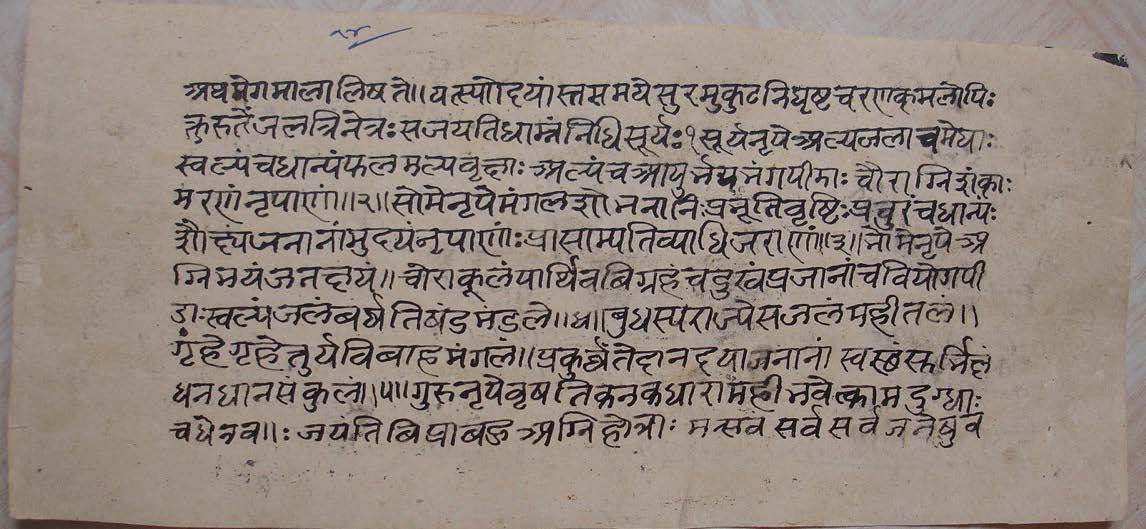 १४
अथ मेगमाला लिषते॥ यत्स्योदयास्तसमये सुरमुकुटनिघृष्टचरणकमलोपिः
कुरुतेंजलत्रिनेत्रः सजयति धाम्नं निधि सूर्यः १ सूर्यनृपे अल्पजलाचमेघाः
स्वल्पंचधान्यंफलमल्पवृक्षाः अल्पंचआयुर्भय चौराग्निशंकाः
मरणंनृपाणां॥२॥ सोमेनृपेमंगलशोभनानिः प्रभूतिवृष्टिः प्रचुरंचधान्यं
जनानांमुदयंनृपाणांः प्रासाम्पतिव्याधिजराणां॥३॥ भोमेनृपेअ
ग्निभयंजनक्षयं॥ चोराकूलंपार्थिवबिग्रहंचदुखंप्रजानांचवियोगपी
डाःस्वल्पंजलंबर्षतिषंडमडले॥४॥ बुधस्यराज्येसजलंमहीतलं॥
गृंहेगृहेतुर्यविबाहमंगलं॥ प्रकुर्वतेदानदयाजनानां
धनधानसंकुला॥५॥ गुरुनृपेवृषतिकनकधारामंहीभवेत्कामदुग्धाः
चधेनव॥ः जयंतिबिप्राबहुअग्निहोत्रीः सर्वसर्वजनेषुव